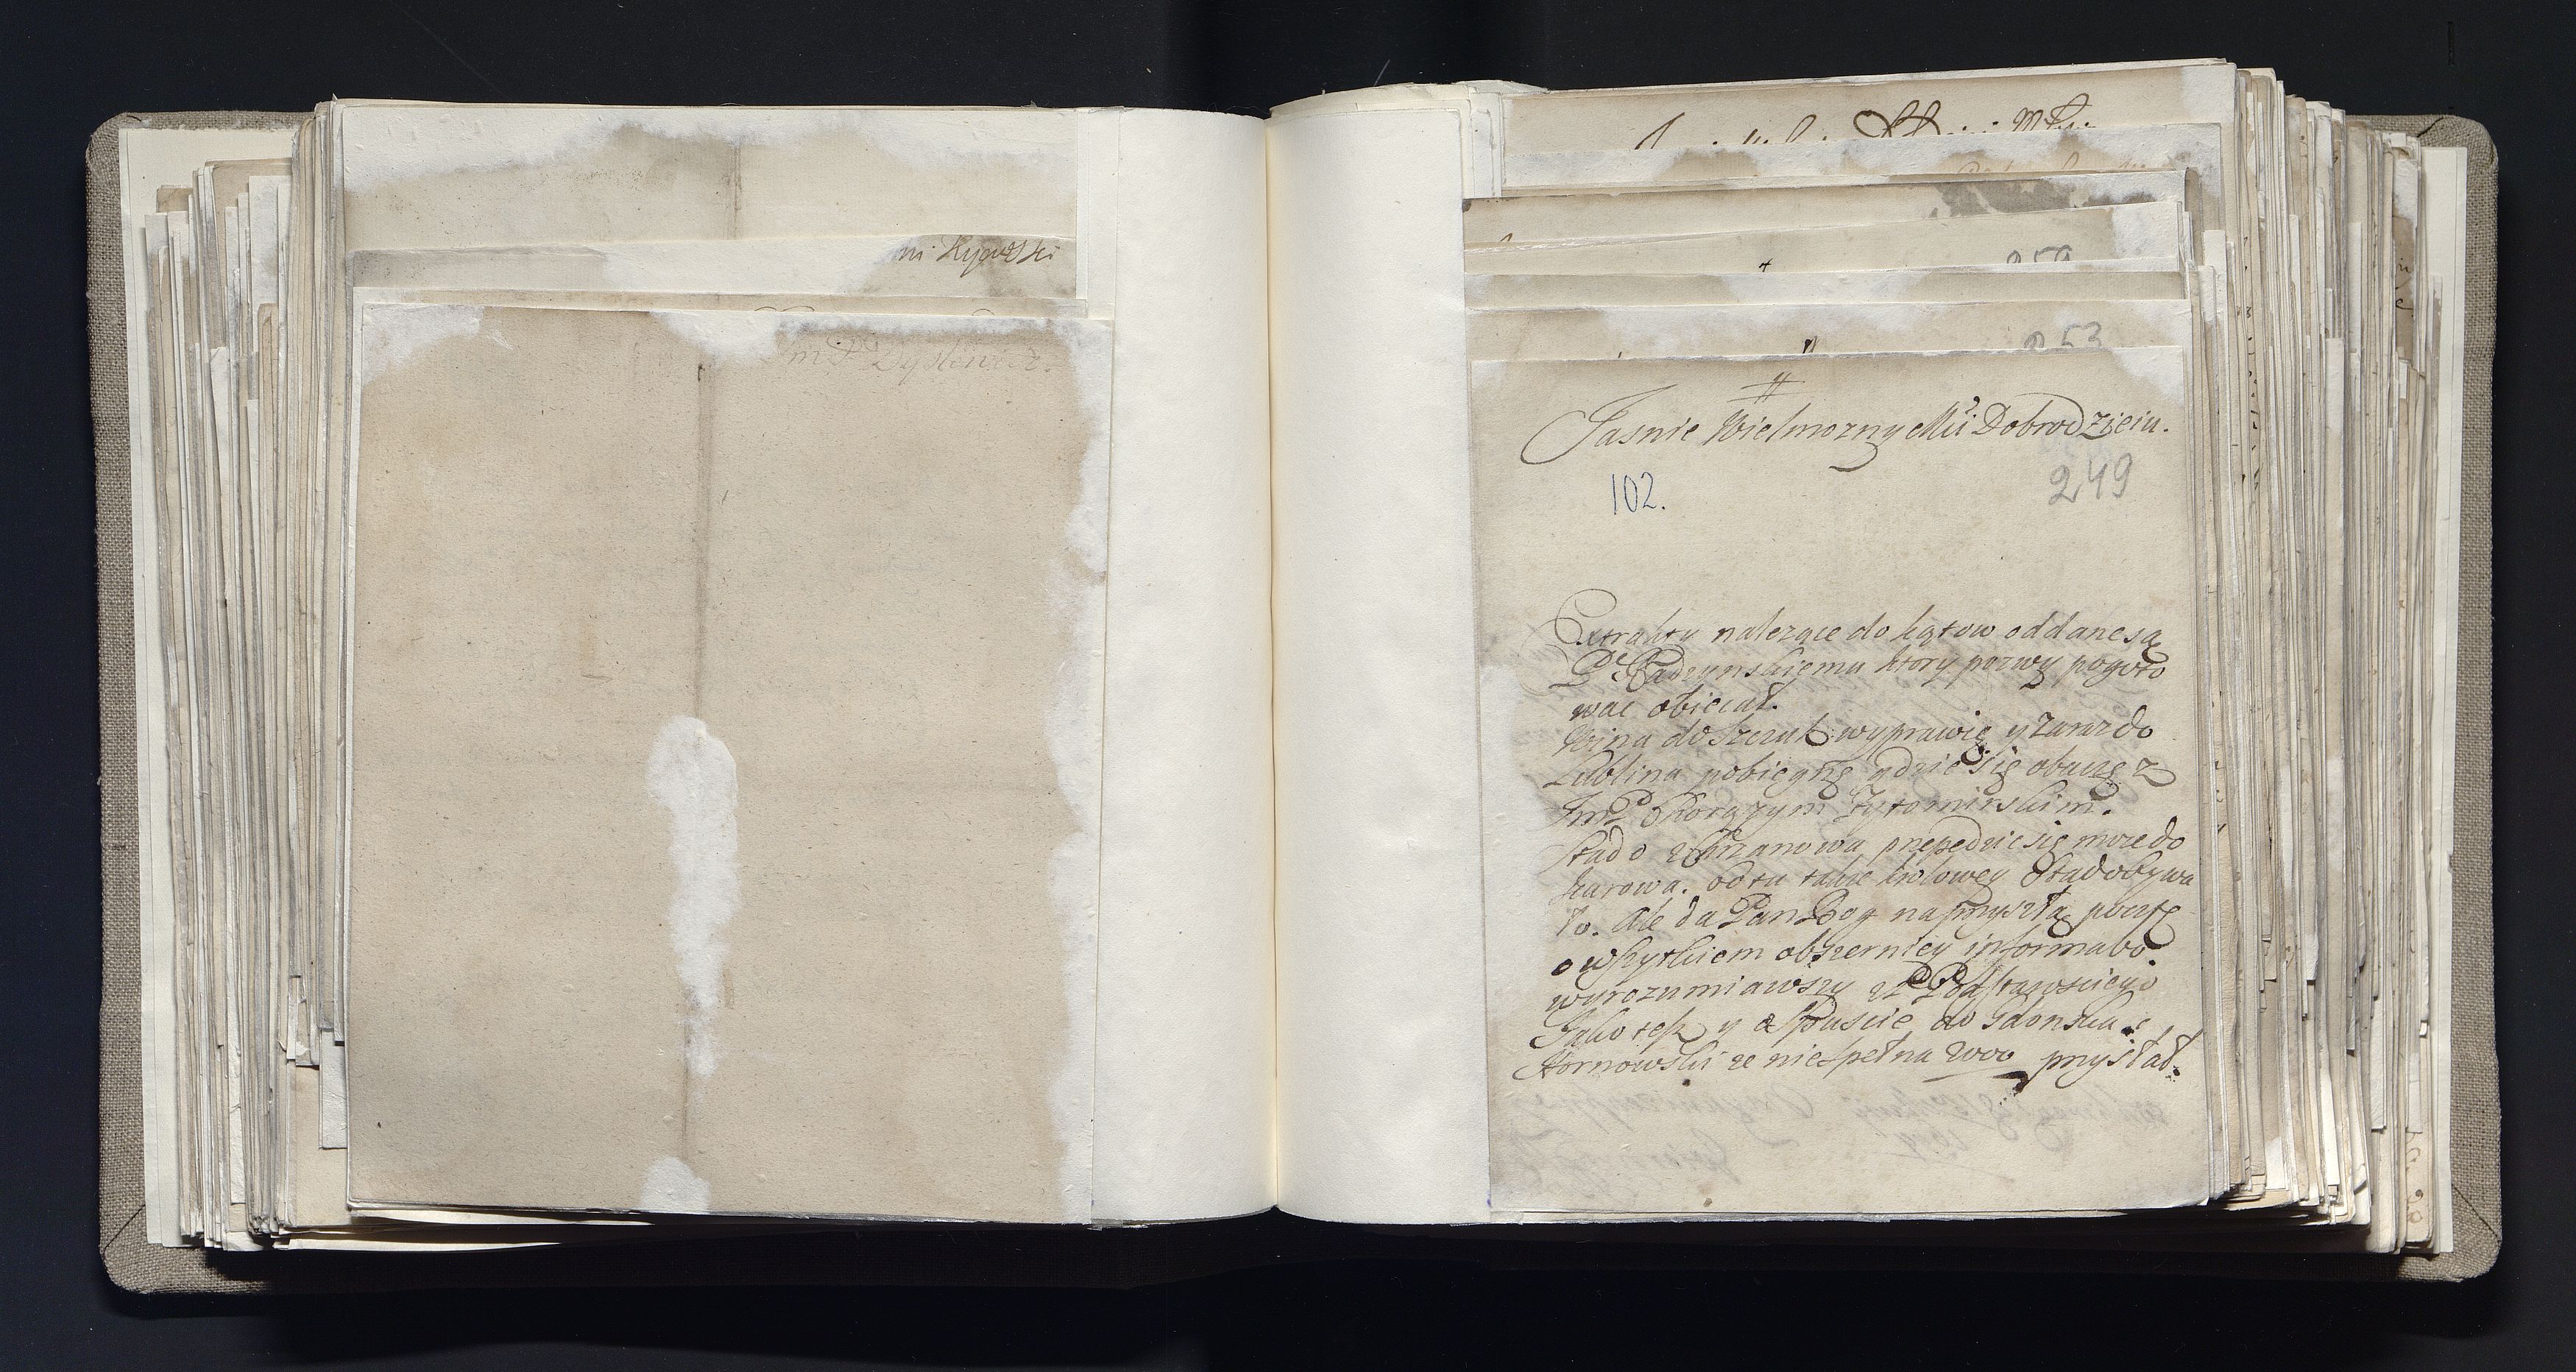 ni Kyowski
Imć P Dyslewicz.
253
Jasnie Wielmozny Mći Dobrodzieiu.
102.
249
Extrakta nalezące do kątow oddane są
Pu Radzynskiemu ktory pozwy pogoto
wac obiecał.
Wina do Szczuk wyprawię y zaraz do
Lublina pobiegnę gdzie się obaczę z
ImP Chorązym Zytomirskim.
Stado z przepędzic się moze do
karowa. od tu takze krolowey Stado bywa
ło. Ale da Pan Bog na przyszłą pocztę
o wszytkiem obszerniey informabo.
wyrozumiawszy z P Podstarosciego
Jako tesz y o Spuscie do Gdanska.
Hornowski ze niespełna 2000 przysłał.